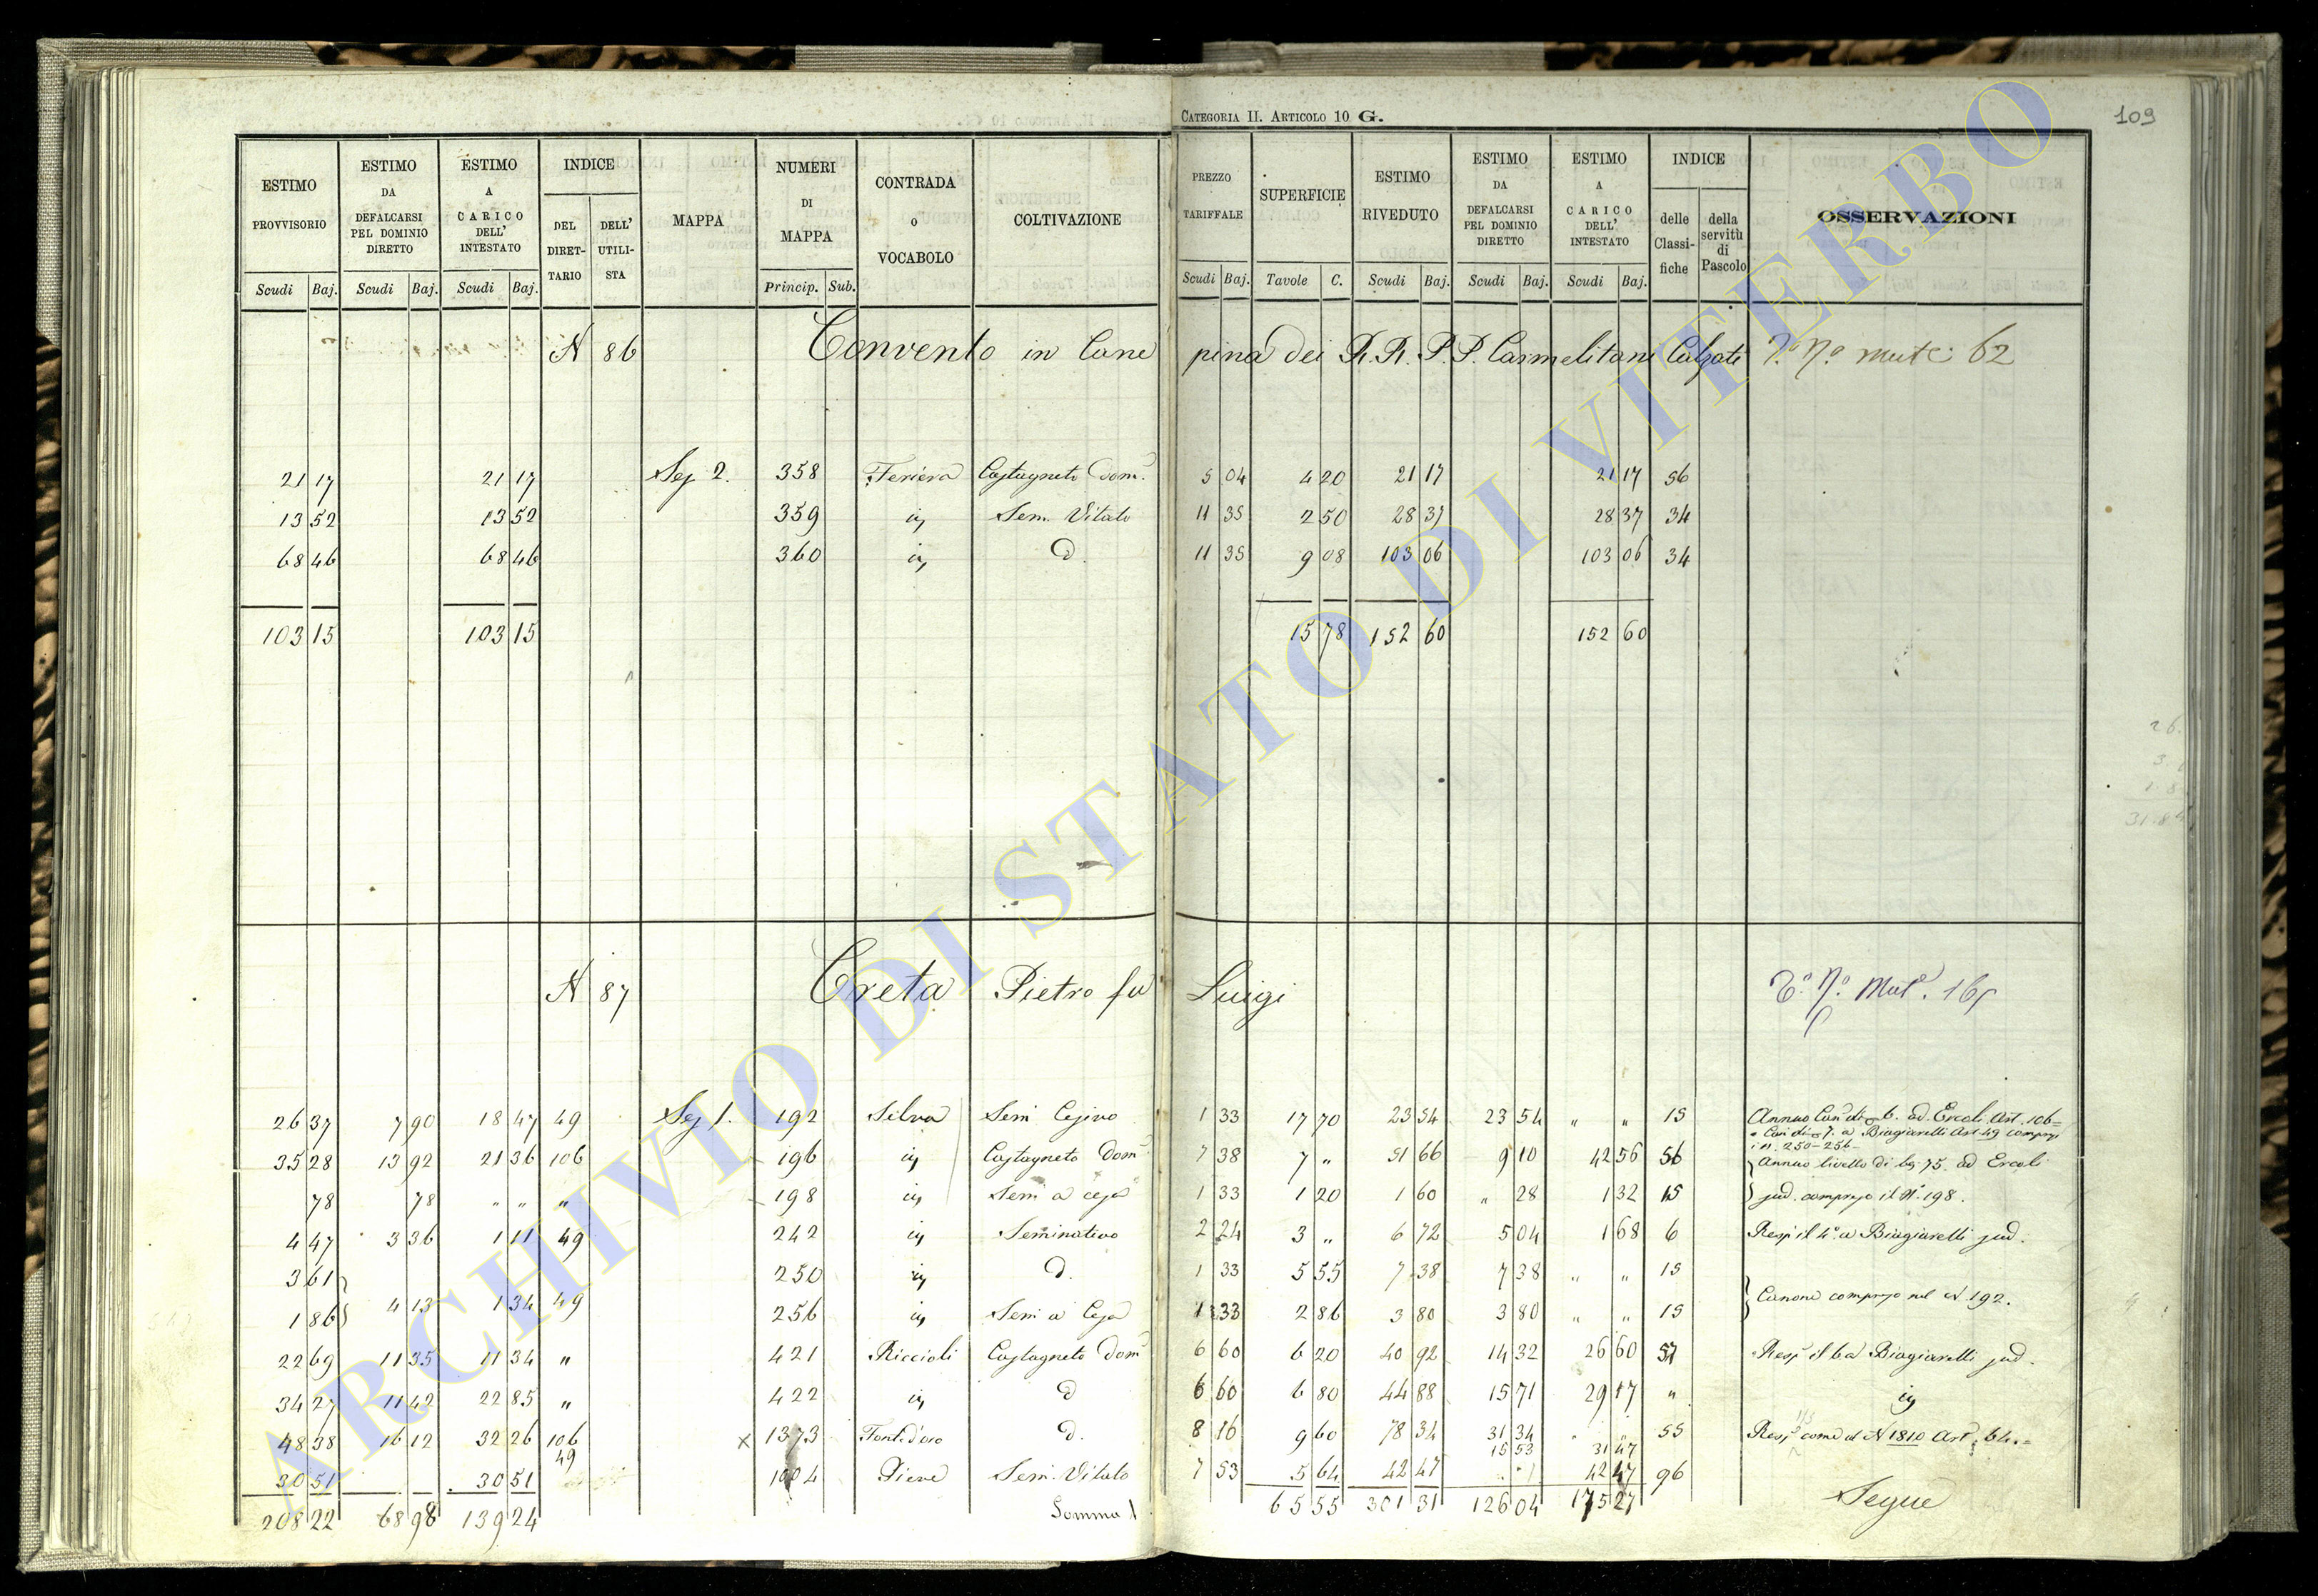 CATEGORIA II. ARTICOLO 10 G.
109
ESTIMO PROVVISORIO Scudi Baj.
ESTIMO DA DEFALCARSI PEL DOMINIO DIRETTO Scudi Baj.
ESTIMO A CARICO DELL' INTESTATO Scudi Baj.
INDICE DEL DIRET-TARIO DELL' UTILI-STA
MAPPA
NUMERI DI MAPPA Princip. Sub.
CONTRADA o VOCABOLO
COLTIVAZIONE
PREZZO TARIFFALE Scudi Baj.
SUPERFICIE Tavole C.
ESTIMO RIVEDUTO Scudi Baj.
ESTIMO DA DEFALCARSI PEL DOMINIO DIRETTO Scudi Baj.
ESTIMO A CARICO DELL' INTESTATO Scudi Baj.
INDICE delle Classi-fiche della servitù di Pascolo
OSSERVAZIONI
N 86 Convento in Cane pina dei R.R. P.P. Carmelitani Calzati mut: 62
21 17 21 17 Sez 2. 358 Castagneto Dom. 5 04 4 20 21 17 21 17 56
13 52 13 52 359 Sem. Vitato 11 35 2 50 28 37 28 37 34
68 46 68 46 360 d. 11 35 9 08 103 06 103 06 34
103 15 103 15 15 78 152 60 152 60
N 87 Creta Pietro fu Luigi
26 37 7 90 18 47 49 Sez 1. 192 Selva Sem 1 33 17 70 23 54 23 54 " " 15 Annuo ad Ercoli Art. 106=
a Biagiarelli Art. 49
i n. 250-256
35 28 13 92 21 36 106 196 Castagneto Dom 7 38 7 " 51 66 9 10 42 56 56 Annuo livello di 75. ad Ercoli
78 78 " " " 198 Sem a ceja 1 33 1 20 1 60 " 28 1 32 15 il N. 198.
4 47 3 36 1 11 49 242 Seminativo 2 24 3 " 6 72 5 04 1 68 6 Resp il a Biagiarelli
3 61 250 d. 1 33 5 55 7 38 7 38 " " 15
1 86 4 13 1 34 49 256 Sem a Ceja 1 33 2 86 3 80 3 80 " " 15 Canone nel N 192.
22 69 11 35 11 34 " 421 Riccioli Castagneto Dom 6 60 6 20 40 92 14 32 26 60 57 Biagiarelli
34 27 11 42 22 85 " 422 d 6 60 6 80 44 88 15 71 29 17 "
48 38 16 12 32 26 106 x 1373 d. 8 16 9 60 78 34 31 34 55 Resp come al N 1810 Art. 64.=
49 15 53 31 47
30 51 30 51 Pieve Sem. Vitato 7 53 5 64 42 47 42 47 96
208 22 68 98 139 24 Somma 65 55 301 31 126 04 175 27 Segue
ARCHIVIO DI STATO DI VITERBO